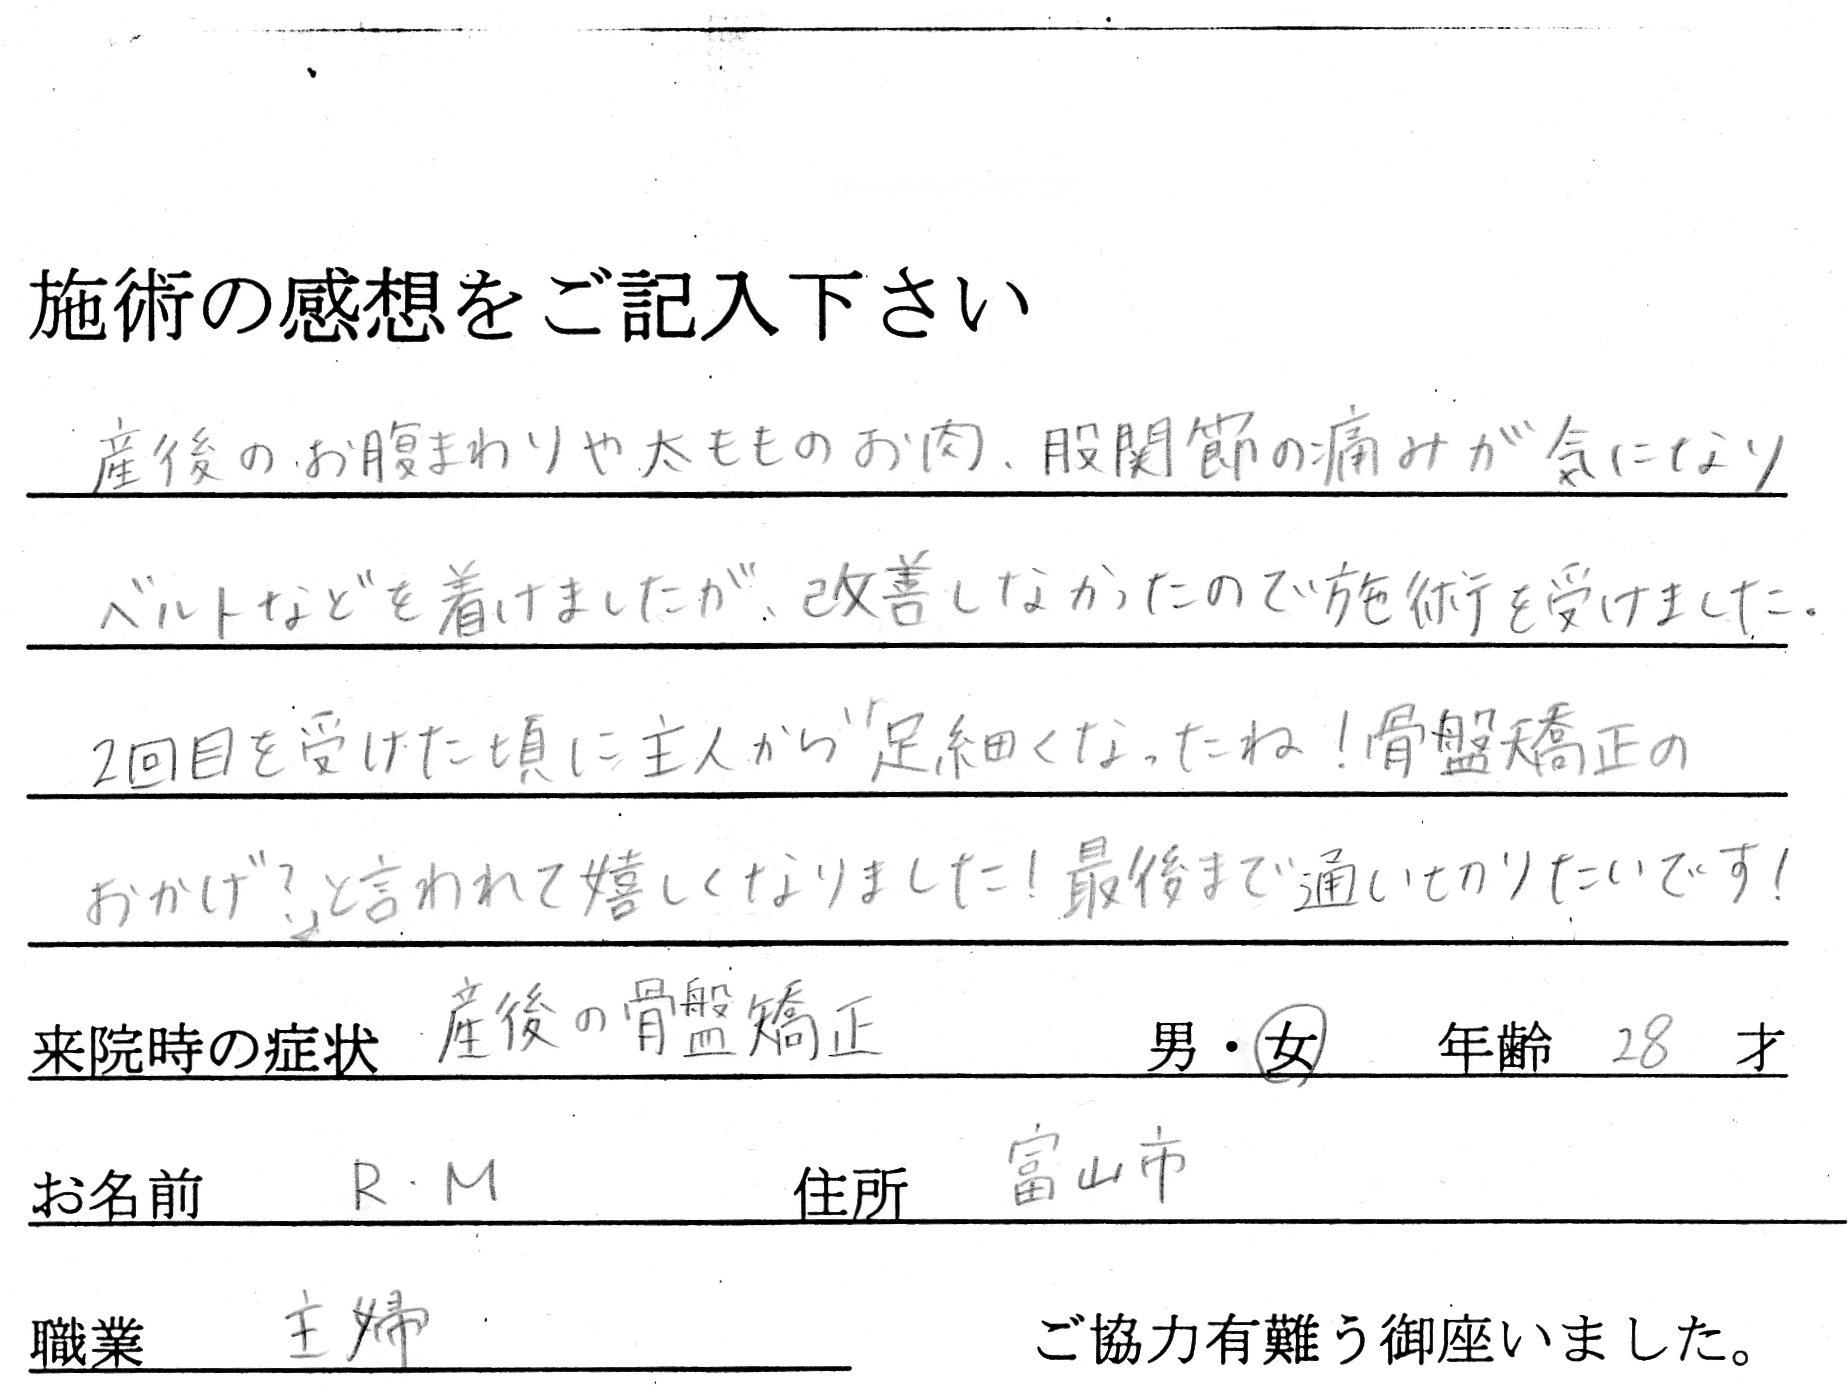 施術の感想をご記入下さい
産後のお腹まわりや太もものお肉、股関節の痛みが気になり
ベルトなどを着けましたが、改善しなかったので施術を受けました。
2回目を受けた頃に主人から"足細くなったね！骨盤矯正の
おかげ？"と言われて嬉しくなりました！最後まで通い切りたいです！
来院時の症状 産後の骨盤矯正 男・女 年齢 28 才
お名前 R・M 住所 富山市
職業 主婦 ご協力有難う御座いました。